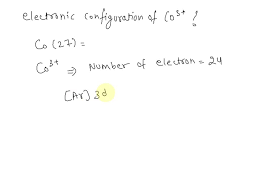 electronic configuration of Co³⁺ ?
Co (27) =
Co³⁺ ⇒ Number of electron = 24
[Ar] 3d